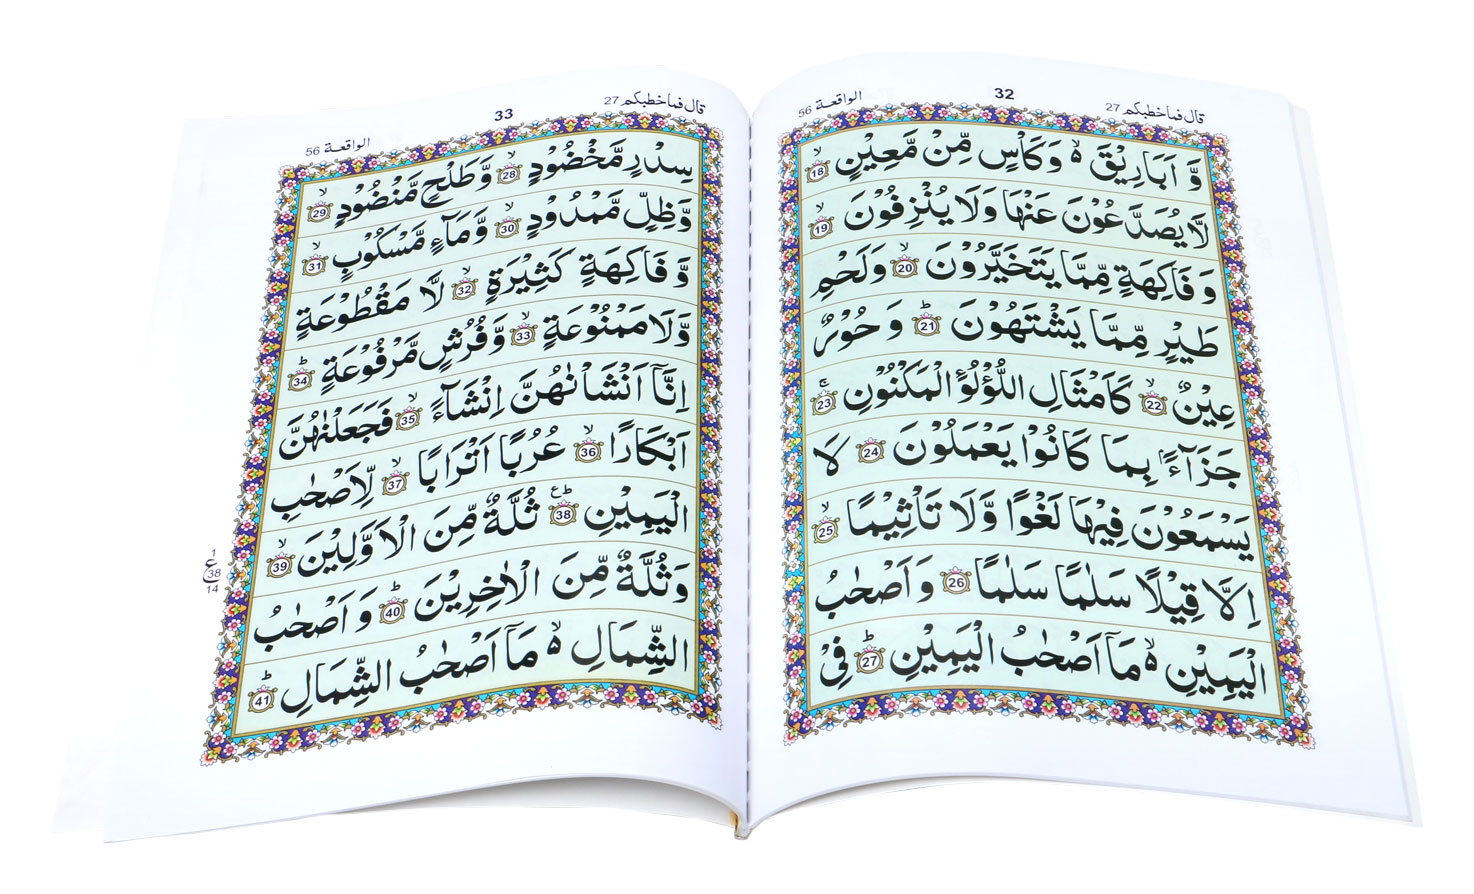 الواقعة 56
32
قال فما خطبكم 27
وَّ اَبَارِيْقَ ۙ وَكَاْسٍ مِّنْ مَّعِيْنٍ ۙ 18
لَّا يُصَدَّعُوْنَ عَنْهَا وَلَا يُنْزِفُوْنَ ۙ 19
وَ فَاكِهَةٍ مِّمَّا يَتَخَيَّرُوْنَ ۙ 20 وَلَحْمِ
طَيْرٍ مِّمَّا يَشْتَهُوْنَ ؕ 21 وَ حُوْرٌ
عِيْنٌ ۙ 22 كَاَمْثَالِ اللُّؤْلُؤِ الْمَكْنُوْنِ ۚ 23
جَزَآءًۢ بِمَا كَانُوْا يَعْمَلُوْنَ 24 لَا
يَسْمَعُوْنَ فِيْهَا لَغْوًا وَّلَا تَاْثِيْمًا ۙ 25
اِلَّا قِيْلًا سَلٰمًا سَلٰمًا 26 وَ اَصْحٰبُ
الْيَمِيْنِ ۙ مَاۤ اَصْحٰبُ الْيَمِيْنِ ؕ 27 فِيْ
قال فما خطبكم 27
33
الواقعة 56
سِدْرٍ مَّخْضُوْدٍ ۙ 28 وَّ طَلْحٍ مَّنْضُوْدٍ ۙ 29
وَّ ظِلٍّ مَّمْدُوْدٍ ۙ 30 وَّ مَآءٍ مَّسْكُوْبٍ ۙ 31
وَّ فَاكِهَةٍ كَثِيْرَةٍ ۙ 32 لَّا مَقْطُوْعَةٍ
وَّلَا مَمْنُوْعَةٍ ۙ 33 وَّ فُرُشٍ مَّرْفُوْعَةٍ ؕ 34
اِنَّاۤ اَنْشَاْنٰهُنَّ اِنْشَآءً ۙ 35 فَجَعَلْنٰهُنَّ
اَبْكَارًا ۙ 36 عُرُبًا اَتْرَابًا ۙ 37 لِّاَصْحٰبِ
الْيَمِيْنِ ؕع 38 ثُلَّةٌ مِّنَ الْاَوَّلِيْنَ ۙ 39
وَ ثُلَّةٌ مِّنَ الْاٰخِرِيْنَ ؕ 40 وَ اَصْحٰبُ
الشِّمَالِ ۙ مَاۤ اَصْحٰبُ الشِّمَالِ ؕ 41
1
ع
38
14